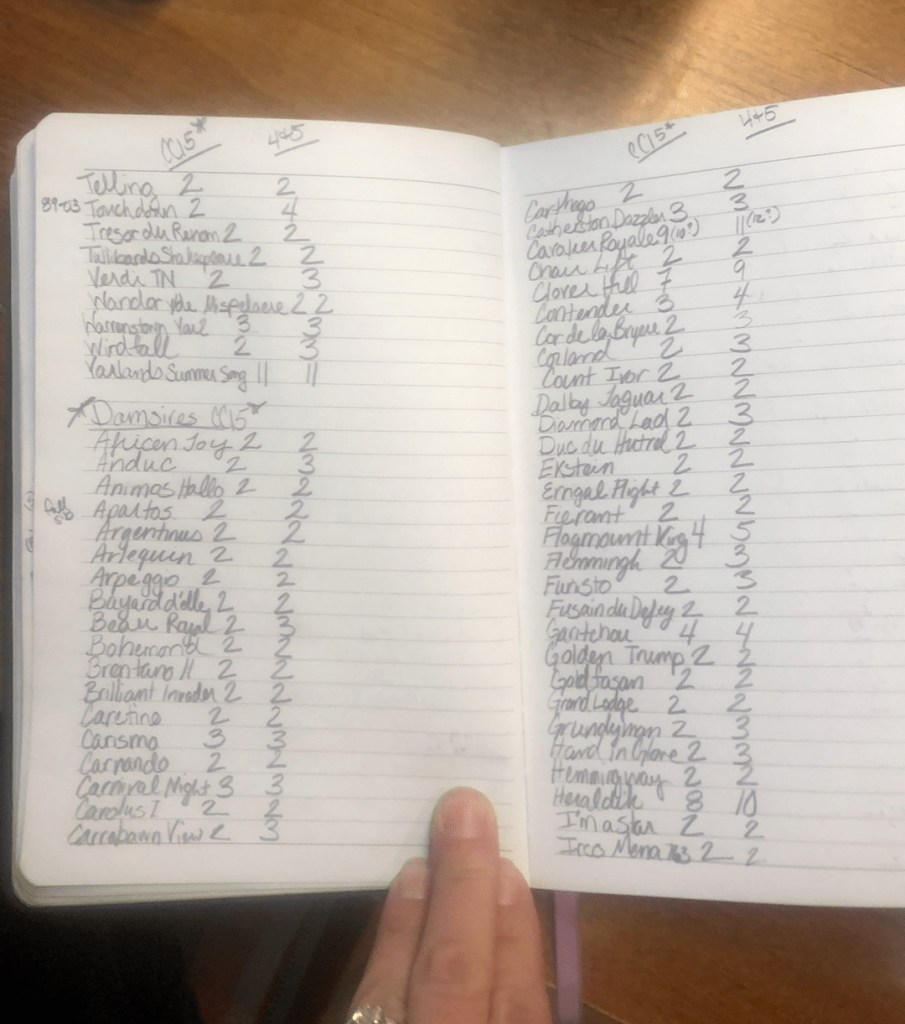 CCI5* 4&5
Telling 2 2
89-03 Touchdown 2 4
Tresor du Renom 2 2
Tullibards Shakespeare 2 2
Verdi TN 2 3
Wandor van de Mispelaere 2 2
Warrenstown You2 3 3
Windfall 2 3
Yarlands Summer Song 11 11
*Damsires CCI5*
African Joy 2 2
Anduc 2 3
Animos Hallo 2 2
Apartos 2 2
Argentinus 2 2
Arlequin 2 2
Arpeggio 2 2
Bayard d'elle 2 2
Beau Royal 2 3
Bohemond 2 2
Brentano II 2 2
Brilliant Invader 2 2
Caretino 2 2
Carismo 3 3
Carnando 2 2
Carnival Night 3 3
Carolus I 2 2
Carrabawn View 2 3
CCI5* 4&5
Carthago 2 2
Catherston Dazzler 3 3
Cavalier Royale 9 (10?) 11 (12?)
Chair Lift 2 2
Clover Hill 7 9
Contender 3 4
Cor de la Bryere 2 3
Corland 2 3
Count Ivor 2 2
Dalby Jaguar 2 2
Diamond Lad 2 3
Duc du Hutrel 2 2
Ekstein 2 2
Erngal Flight 2 2
Fierant 2 2
Flagmount King 4 5
Flemmingh 2 3
Funsto 2 3
Fusain du Defey 2 2
Gantchou 4 4
Golden Trump 2 2
Goldfasan 2 2
Grand Lodge 2 2
Grundyman 2 3
Hand in Glove 2 3
Hemmingway 2 2
Heraldik 8 10
I'm a Star 2 2
Irco Mena 2 2